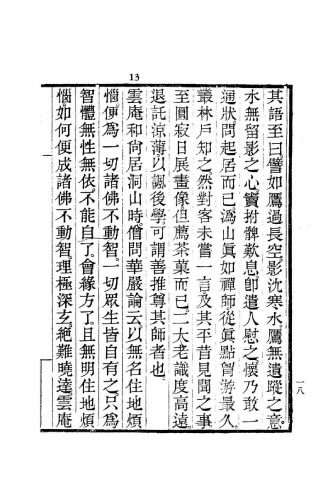 13
其語至曰譬如鴈過長空影沈寒水鴈無遺蹤之意
水無留影之心實拊髀歎息即遣人慰之懷乃敢一
通狀問起居而已溈山眞如禪師從眞點胷游最久
叢林戶知之然對客未嘗一言及其平昔見聞之事
至圓寂日展畫像但薦茶菓而已二大老識度高遠
退託涼薄以諷後學可謂善推尊其師者也
雲庵和尚居洞山時僧問華嚴論云以無名住地煩
惱便爲一切諸佛不動智一切眾生皆自有之只爲
智體無性無依不能自了會緣方了且無明住地煩
惱如何便成諸佛不動智理極深玄絕難曉達雲庵
一八